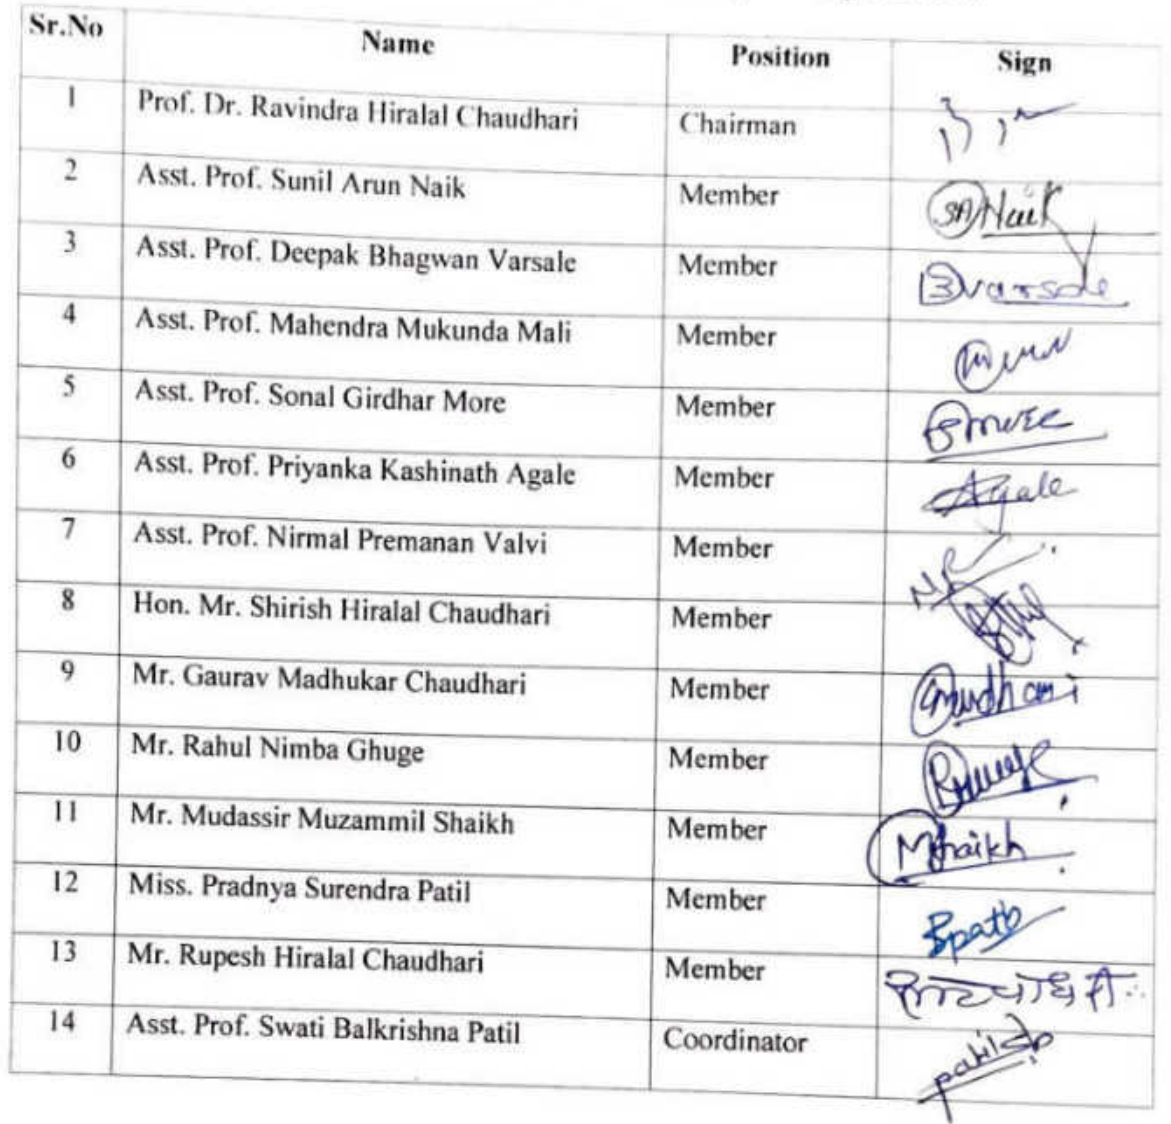 Sr.No Name Position Sign
1 Prof. Dr. Ravindra Hiralal Chaudhari Chairman
2 Asst. Prof. Sunil Arun Naik Member SANaik
3 Asst. Prof. Deepak Bhagwan Varsale Member Bvarsale
4 Asst. Prof. Mahendra Mukunda Mali Member
5 Asst. Prof. Sonal Girdhar More Member
6 Asst. Prof. Priyanka Kashinath Agale Member Agale
7 Asst. Prof. Nirmal Premanan Valvi Member
8 Hon. Mr. Shirish Hiralal Chaudhari Member
9 Mr. Gaurav Madhukar Chaudhari Member
10 Mr. Rahul Nimba Ghuge Member
11 Mr. Mudassir Muzammil Shaikh Member Mshaikh
12 Miss. Pradnya Surendra Patil Member
13 Mr. Rupesh Hiralal Chaudhari Member
14 Asst. Prof. Swati Balkrishna Patil Coordinator